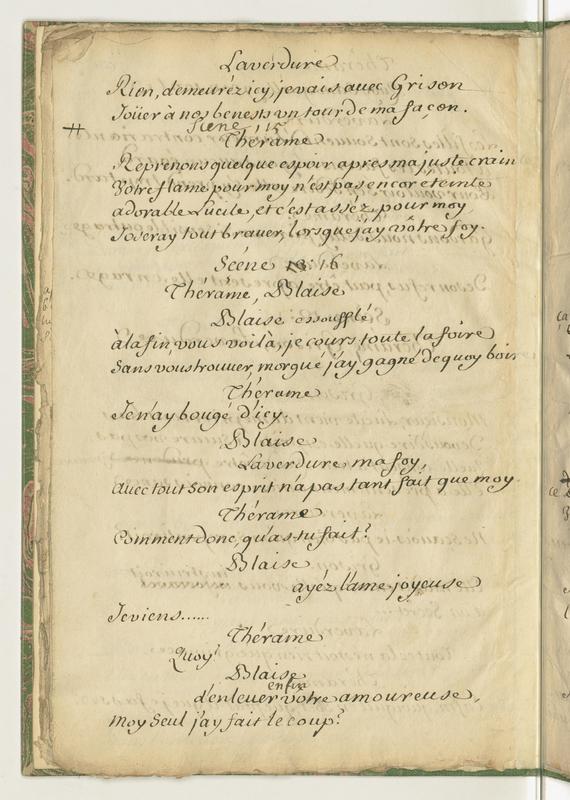 Laverdure
Rien, demeuréz icy, je vais avec Grison
Joüer à nos benests vn tour de ma façon.
# Scene 15
Thérame
Reprenons quelque espoir apres ma juste crain
Votre flâme pour moy n'est pas encor éteinte
adorable Lucile, et c'est asséz pour moy
J'oseray tout braver, lorsque j'ay vôtre foy.
Scéne 16
Thérame, Blaise
Blaise essoufflé
à la fin, vous voilà, je cours toute la foire
Sans vous trouver, morgué j'ay gagné de quoy boir
Thérame
Je n'ay bougé d'icy.
Blaise
Laverdure ma foy,
avec tout son esprit n'a pas tant fait que moy
Thérame
Comment donc, qu'as-tu fait?
Blaise
ayéz l'ame joyeuse
Je viens......
Thérame
Quoy?
Blaise
enfin
d'enlever vôtre amoureuse,
moy Seul j'ay fait le coup?